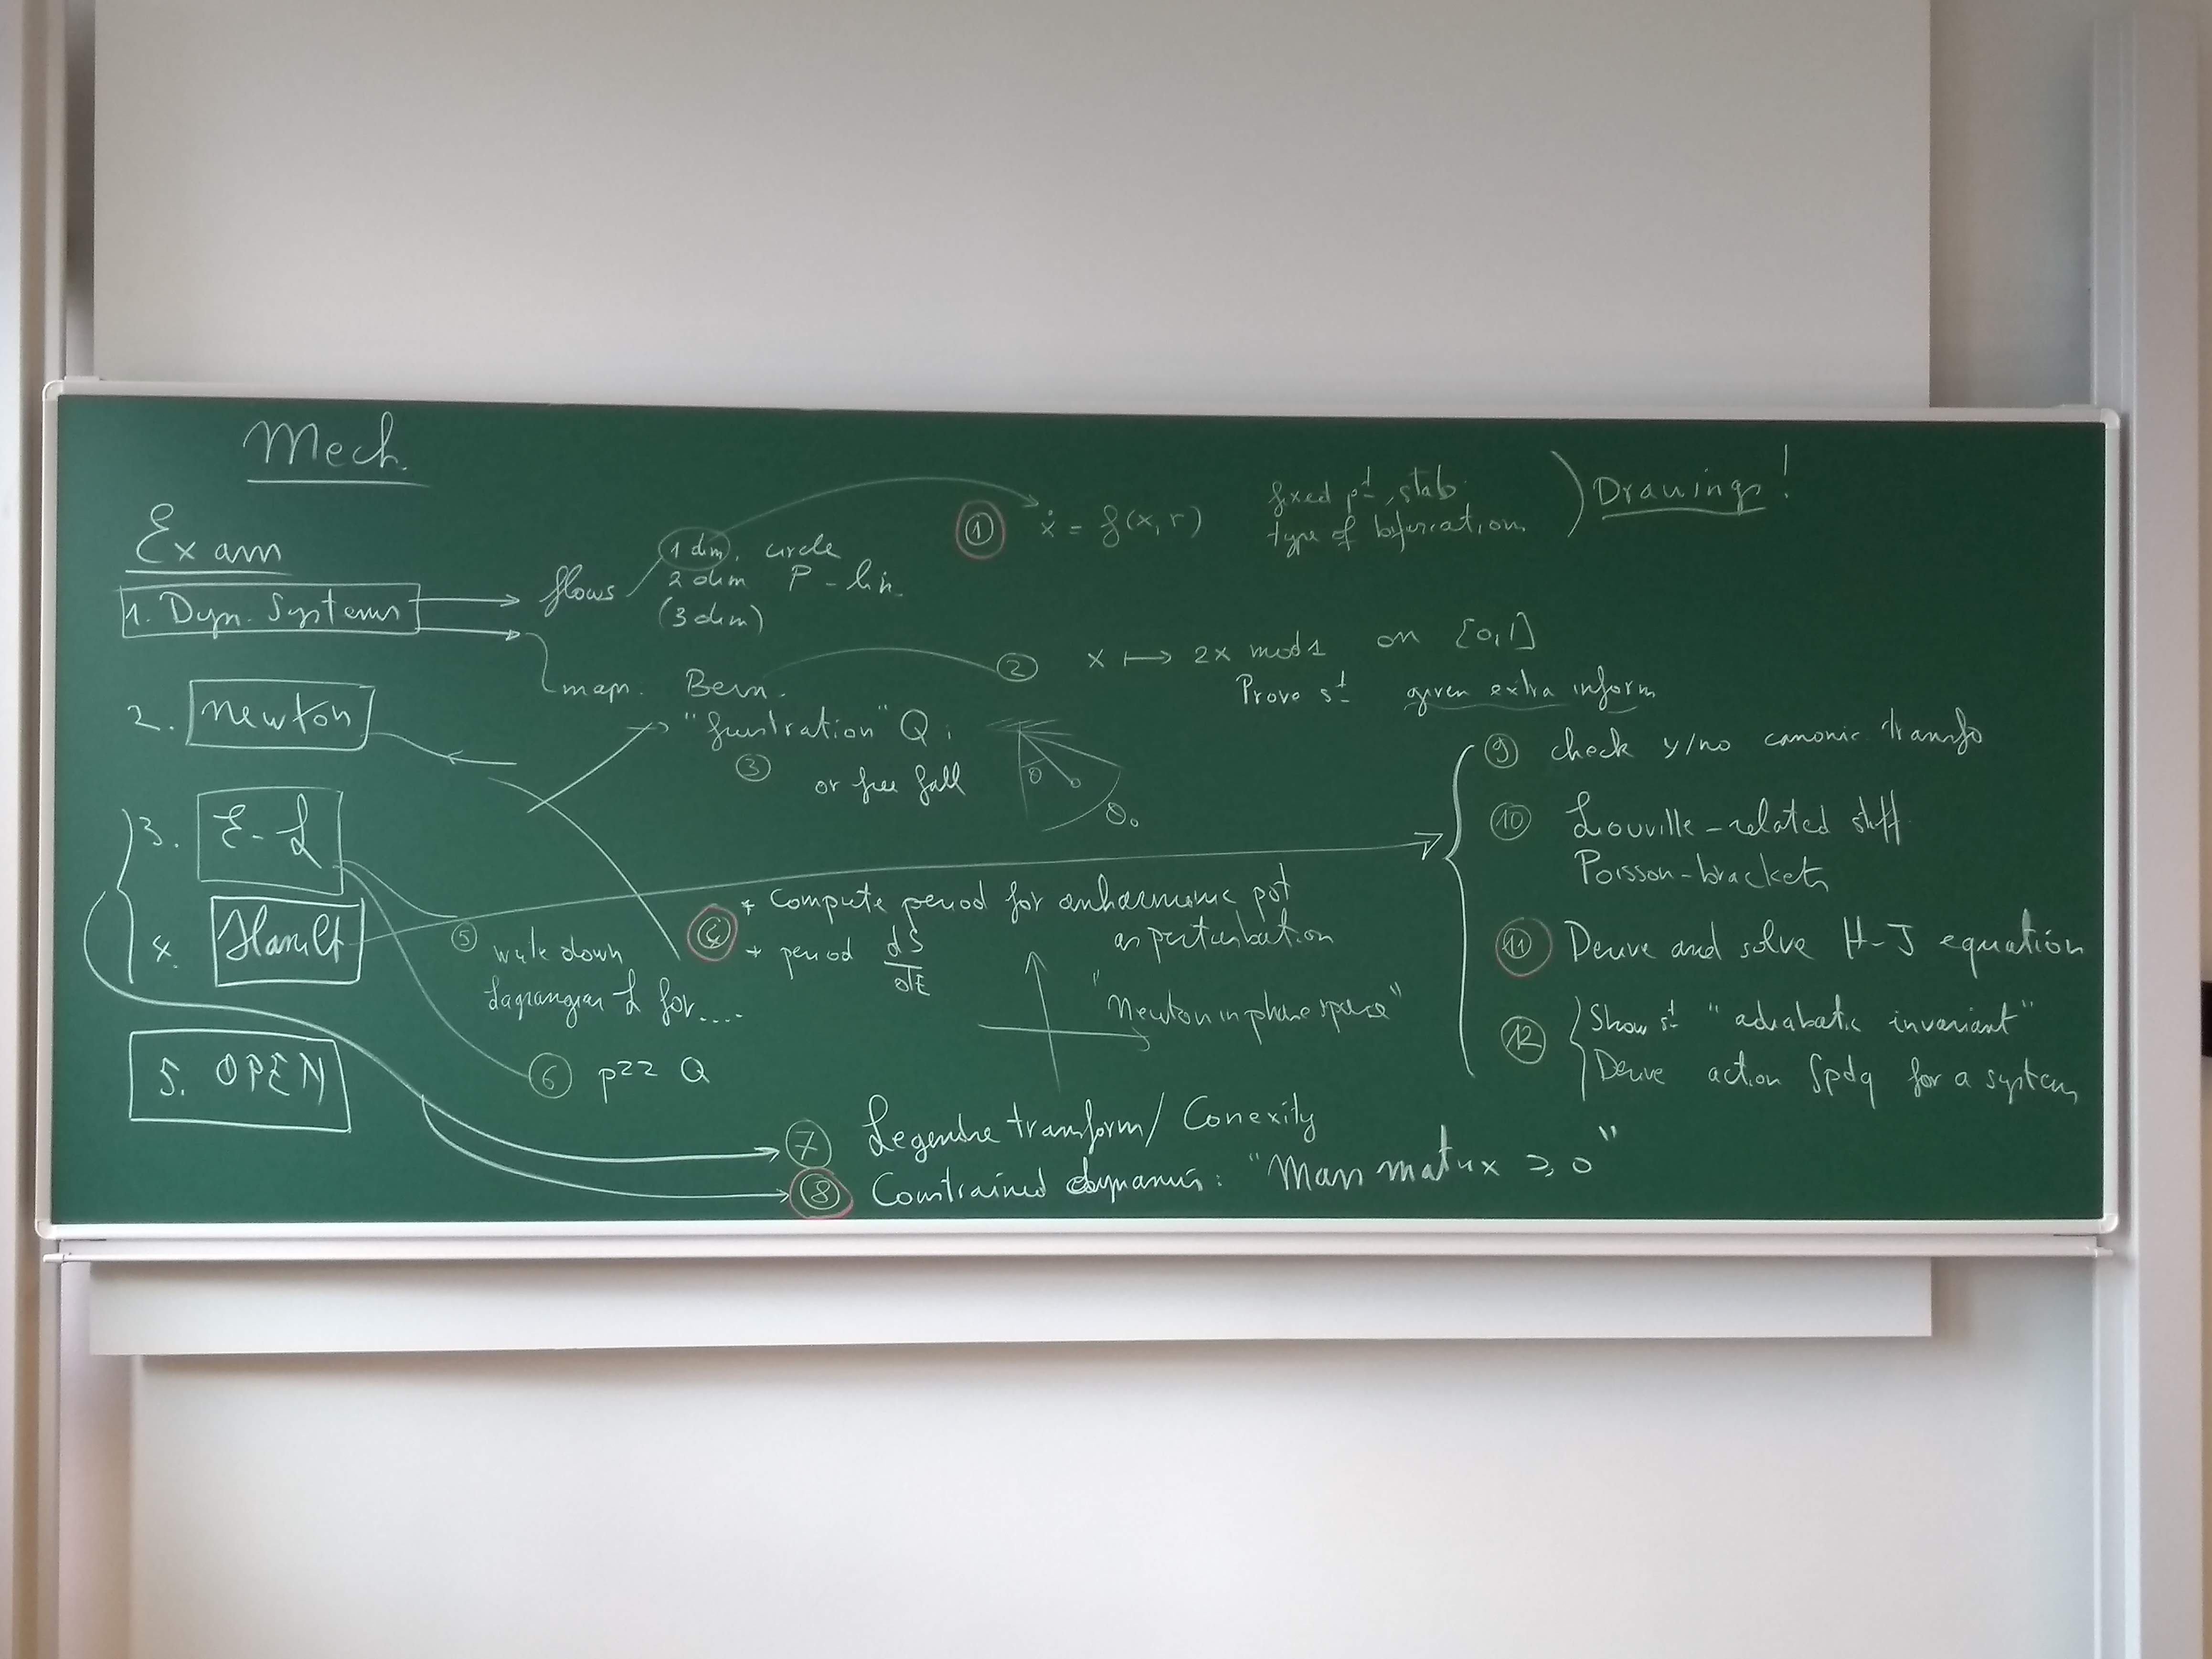 Mech.
Exam
1. Dyn. Systems
flows
1 dim, circle
2 dim P-lin.
(3 dim)
① ẋ = f(x,r)
fixed pt, stab.
type of bifurcation
Drawings!
map. Bern.
② x ↦ 2x mod 1 on [0,1]
Prove st given extra inform
2. Newton
"frustration" Q.
③ or free fall
θ
θ₀
3. E-L
4. Hamilt
5. OPEN
④ * Compute period for anharmonic pot
as perturbation
* period dS/dE
"Newton in phase space"
⑤ write down
Lagrangian L for....
⑥ Q
⑦ Legendre transform / Conexity
⑧ Constrained dynamics: "Mass matrix ≥ 0"
⑨ check y/no canonic. transfo
⑩ Liouville-related stuff
Poisson-brackets
⑪ Derive and solve H-J equation
⑫ Show st "adiabatic invariant"
Derive action ∫pdq for a system